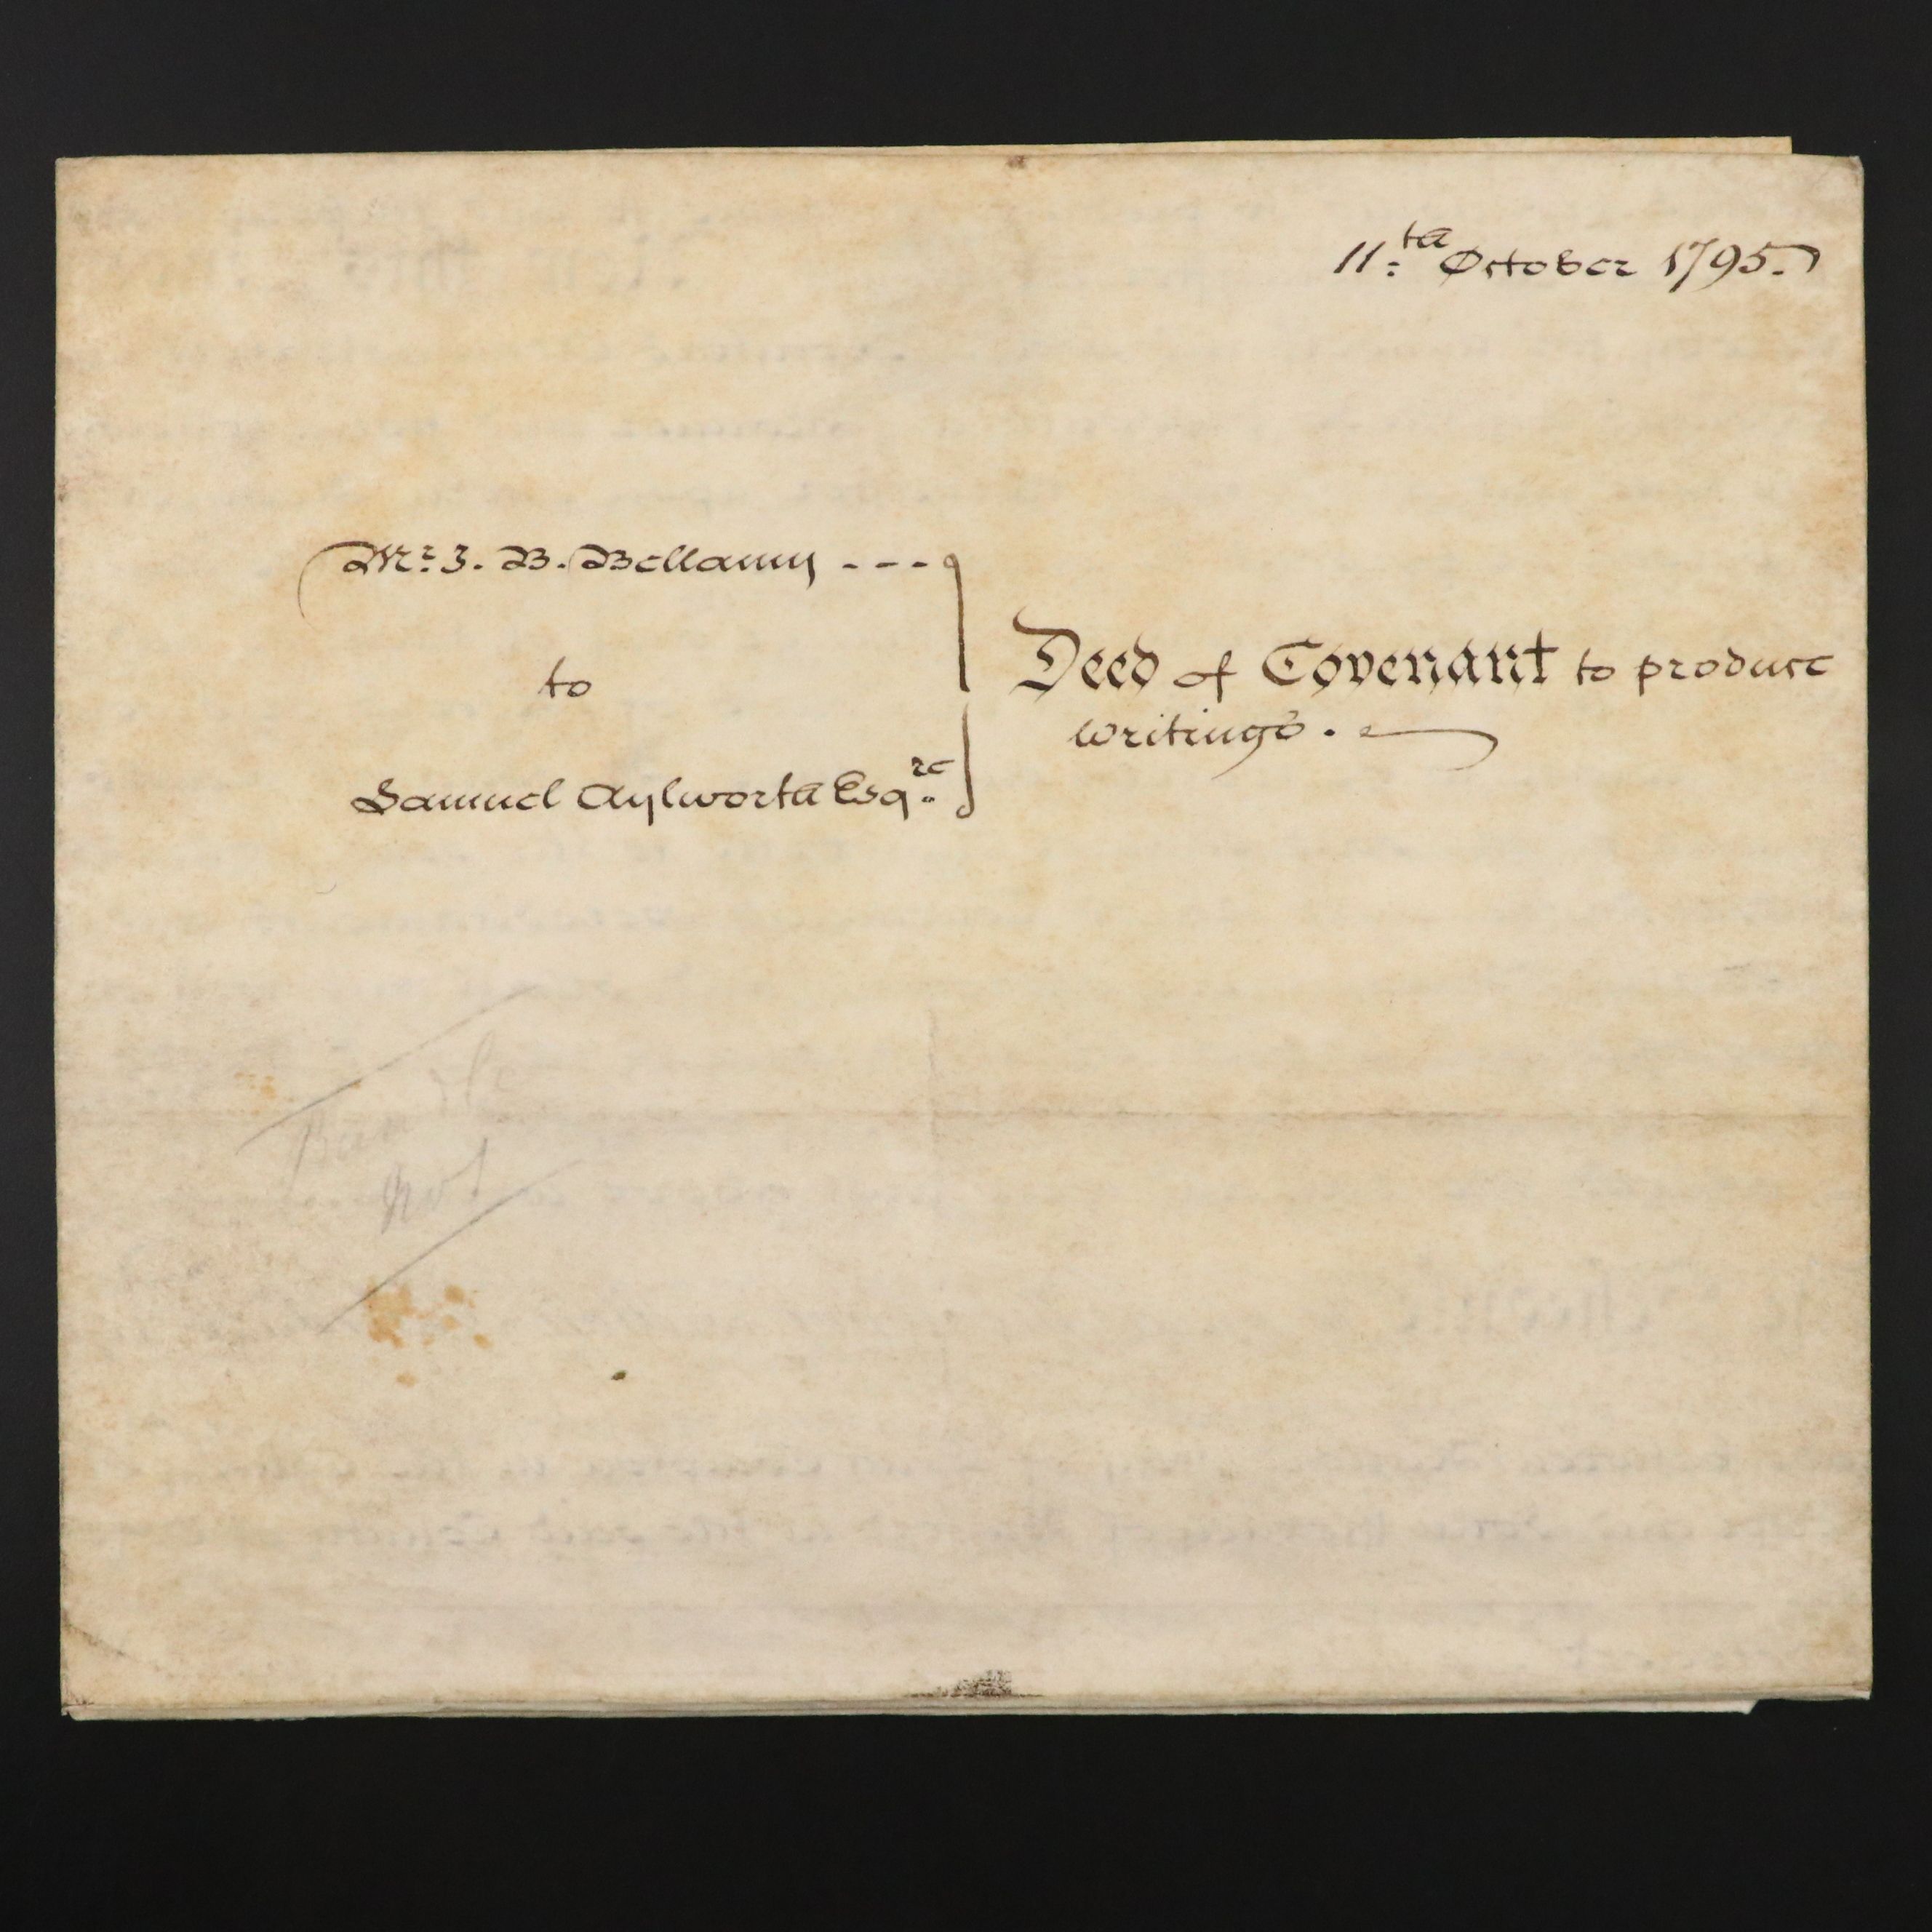 11:th October 1795.
Mr: J. B. Bellamy - - -
to
Samuel Aylworth Esq.re
Deed of Covenant to produce
writings.